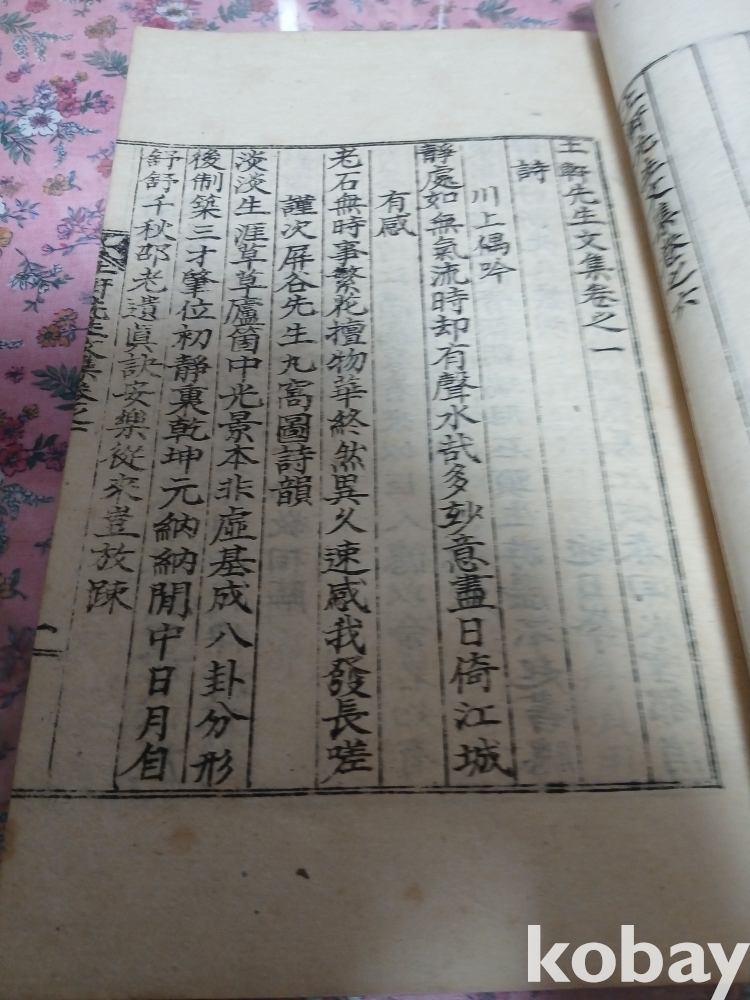 先生文集卷之
軒先生文集卷之一
詩
川上偶吟
靜處如無氣流時却有聲水哉多玅意盡日倚江城
有感
老石無時事繁花擅物華終然異久速感我發長嗟
謹次屛谷先生丸窩圖詩韻
淡淡生涯草草廬箇中光景本非虛基成八卦分形
後制築三才肇位初靜裏乾坤元納納閒中日月自
舒舒千秋邵老遺眞訣安樂從來豈放踈
軒先生文集卷之一
一
kobay